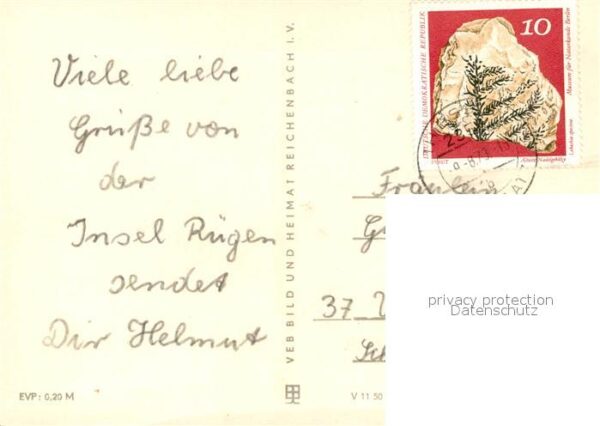 Viele liebe
Grüße von
der
Insel Rügen
sendet
Dir Helmut
EVP: 0,20 M
VEB BILD UND HEIMAT REICHENBACH I. V.
V 11 50
10
DEUTSCHE DEMOKRATISCHE REPUBLIK
POST
Museum für Naturkunde Berlin
Lebachia speciosa
Älteres Nadelgehölz
Fräulein
37
privacy protection
Datenschutz